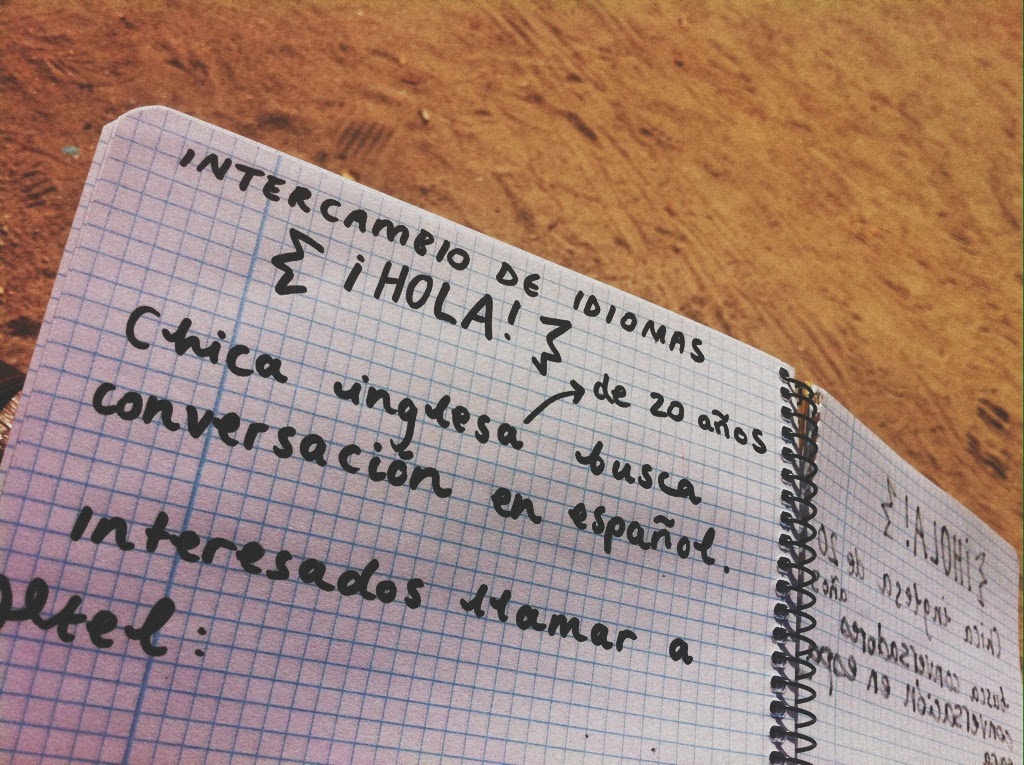 INTERCAMBIO DE IDIOMAS
{ ¡HOLA! }
Chica inglesa busca
de 20 años
conversación en español.
Interesados llamar a
tel:
{ ¡HOLA! }
Chica inglesa de 20 años
busca conversadores
conversación en
para